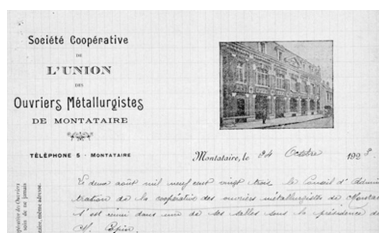 Société Coopérative
DE
L'UNION
DES
Ouvriers Métallurgistes
DE MONTATAIRE
TÉLÉPHONE 5 - MONTATAIRE
Montataire, le 24 Octobre 1923
Le deux août mil neuf cent vingt trois, le Conseil d'Adminis
tration de la coopérative des ouvriers métallurgistes de Montat
s'est réuni dans une de ses salles sous la présidence de
M.